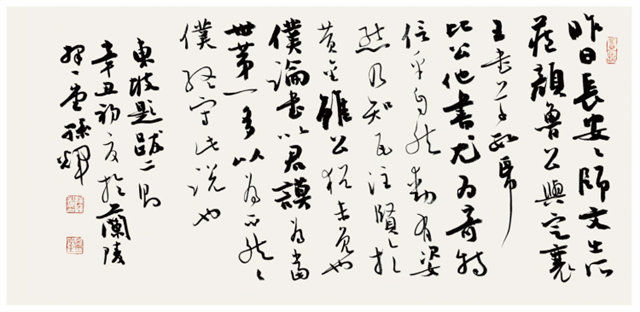 昨日長安〻師文出所
藏顏魯公與定襄
王書草數紙
比公他書尤為奇特
信手自然動有姿
態乃知瓦注賢於
黃金雖公猶未免也
僕論書以君謨為當
世第一多以為不然〻
僕終守此說也
東坡題跋二則
辛丑初夏於蘭陵
一堂孫輝